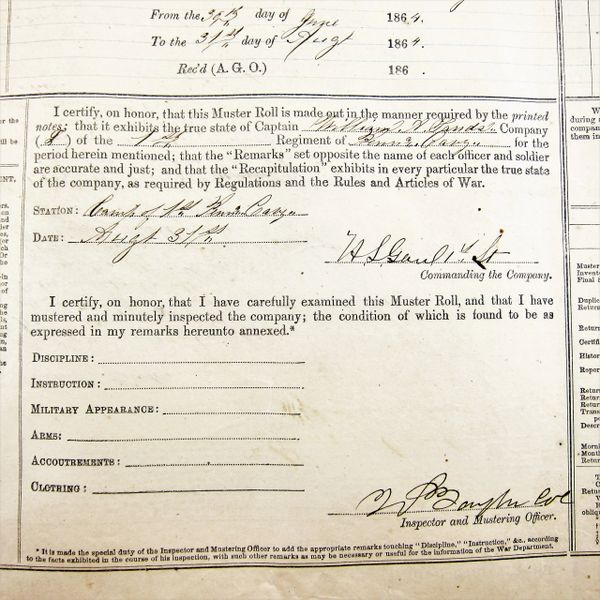 From the 30th day of June 1864.
To the 31st day of Augt 1864.
Rec'd (A. G. O.) 186 .
I certify, on honor, that this Muster Roll is made out in the manner required by the printed
notes; that it exhibits the true state of Captain William Sands' Company
( ) of the 1st Regiment of Penna. for the
period herein mentioned; that the "Remarks" set opposite the name of each officer and soldier
are accurate and just; and that the "Recapitulation" exhibits in every particular the true state
of the company, as required by Regulations and the Rules and Articles of War.
STATION: Camp of 1st Penn
DATE: Augt 31st
1st Lt
Commanding the Company.
I certify, on honor, that I have carefully examined this Muster Roll, and that I have
mustered and minutely inspected the company; the condition of which is found to be as
expressed in my remarks hereunto annexed.*
DISCIPLINE:
INSTRUCTION:
MILITARY APPEARANCE:
ARMS:
ACCOUTREMENTS:
CLOTHING:
Col
Inspector and Mustering Officer.
* It is made the special duty of the Inspector and Mustering Officer to add the appropriate remarks touching "Discipline," "Instruction," &c., according
to the facts exhibited in the course of his inspection, with such other remarks as may be necessary or useful for the information of the War Department.